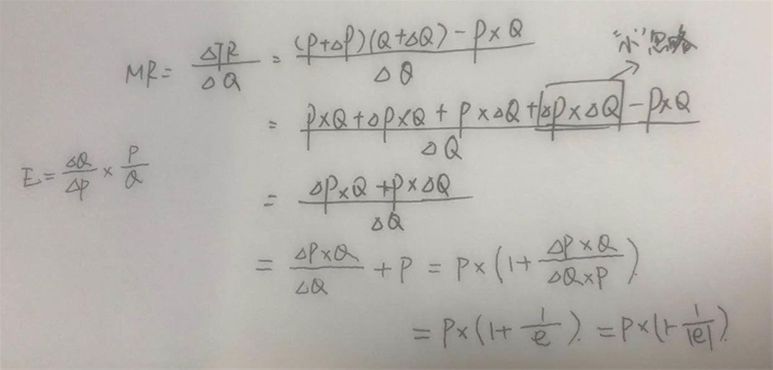 "小"忽略
MR = ΔTR/ΔQ = ((P+ΔP)(Q+ΔQ) - P×Q)/ΔQ
= (P×Q + ΔP×Q + P×ΔQ + ΔP×ΔQ - P×Q)/ΔQ
E = ΔQ/ΔP × P/Q
= (ΔP×Q + P×ΔQ)/ΔQ
= ΔP×Q/ΔQ + P = P×(1 + ΔP×Q/ΔQ×P).
= P×(1 + 1/e). = P×(1 - 1/|e|).